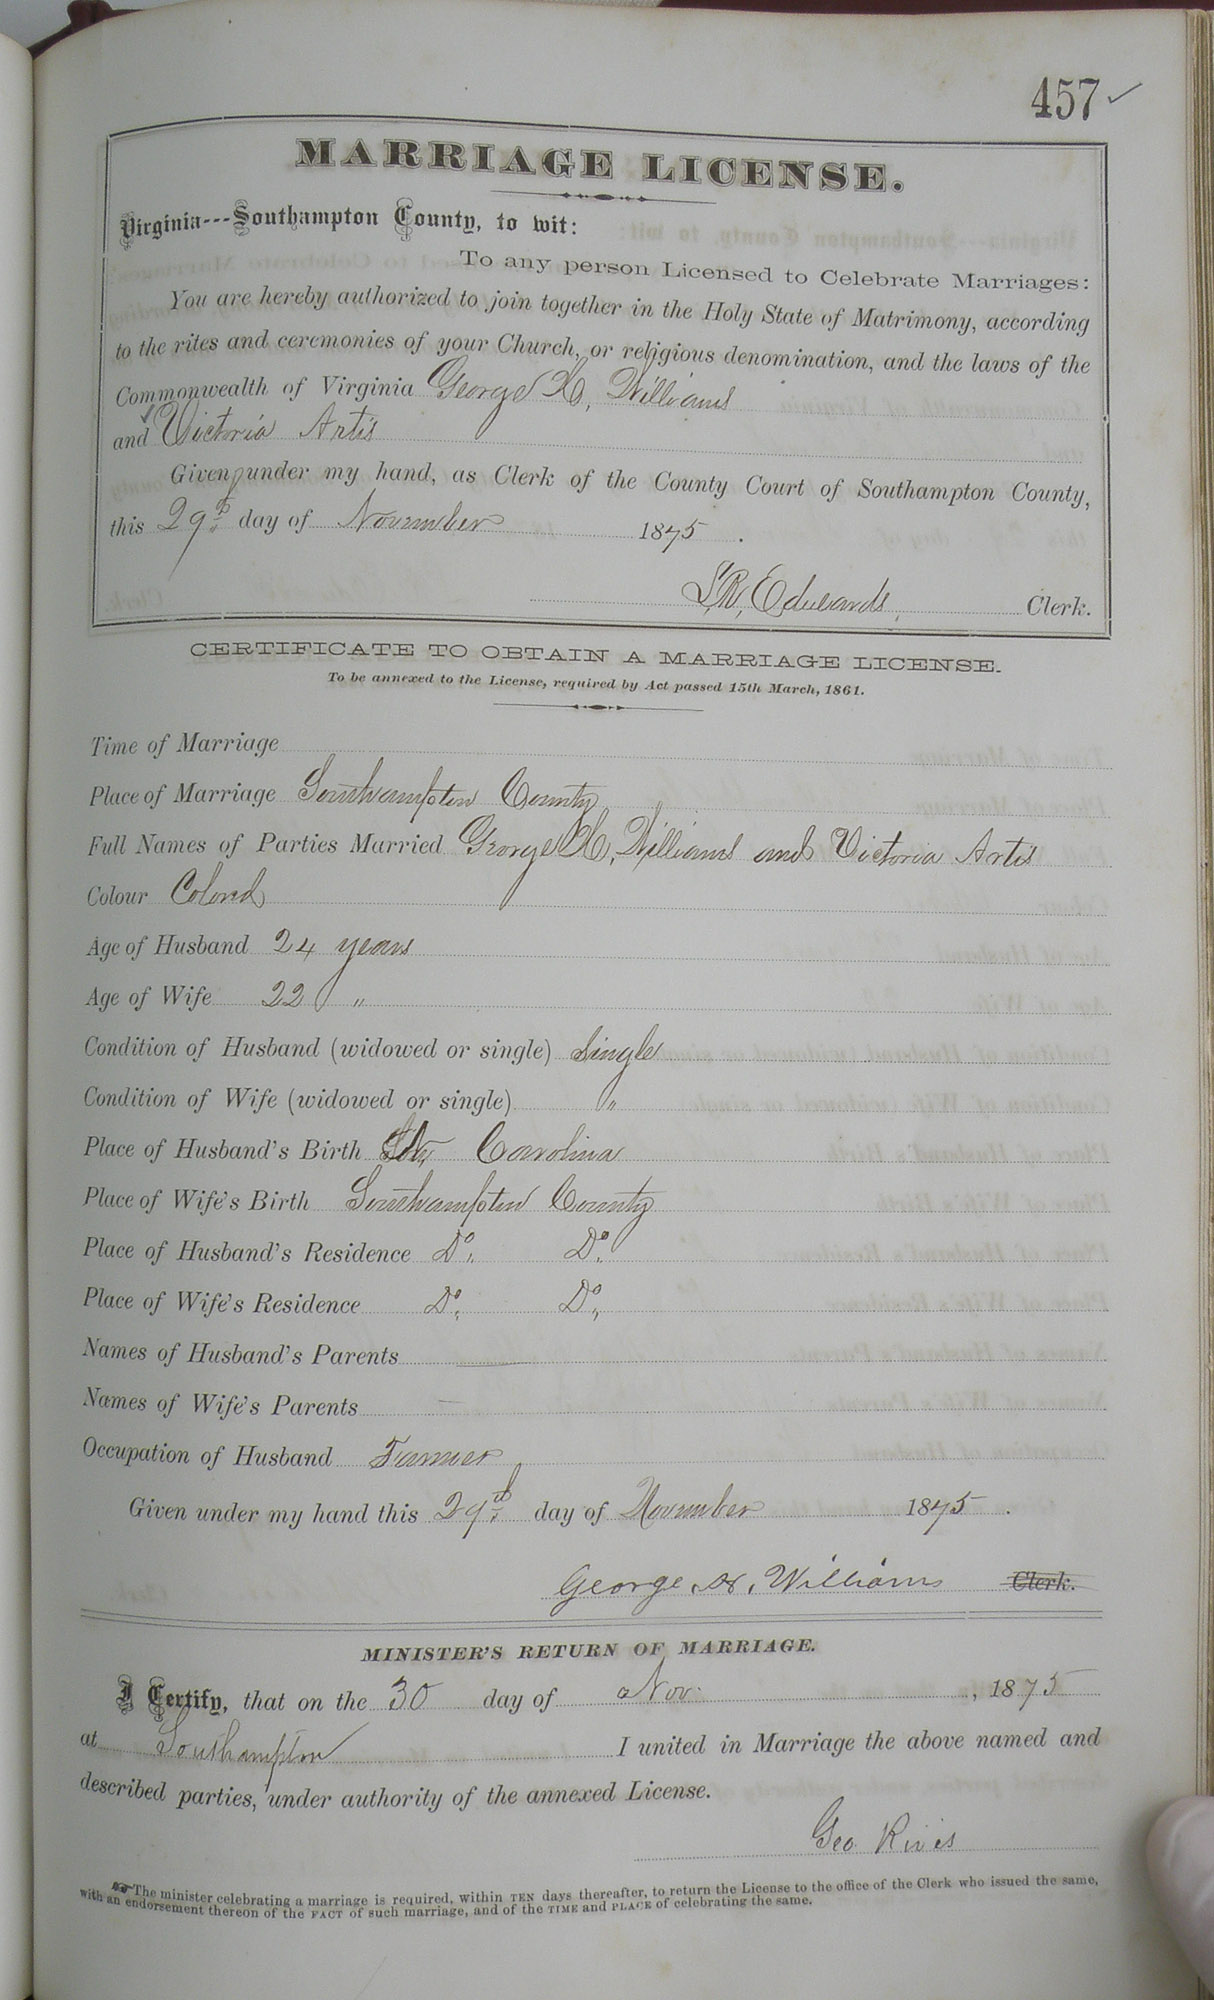 457 ✓
MARRIAGE LICENSE.
Virginia---Southampton County, to wit:
To any person Licensed to Celebrate Marriages:
You are hereby authorized to join together in the Holy State of Matrimony, according
to the rites and ceremonies of your Church, or religious denomination, and the laws of the
Commonwealth of Virginia George H, Williams
and Victoria Artis
Given under my hand, as Clerk of the County Court of Southampton County,
this 29th day of November 1875.
L, R, Edwards, Clerk.
CERTIFICATE TO OBTAIN A MARRIAGE LICENSE.
To be annexed to the License, required by Act passed 15th March, 1861.
Time of Marriage
Place of Marriage Southampton County
Full Names of Parties Married George H, Williams and Victoria Artis
Colour Colored
Age of Husband 24 years
Age of Wife 22 "
Condition of Husband (widowed or single) Single
Condition of Wife (widowed or single) "
Place of Husband's Birth Carolina
Place of Wife's Birth Southampton County
Place of Husband's Residence Do, Do,
Place of Wife's Residence Do, Do,
Names of Husband's Parents —
Names of Wife's Parents —
Occupation of Husband Farmer
Given under my hand this 29th day of November 1875.
George. H. Williams Clerk.
MINISTER'S RETURN OF MARRIAGE.
I Certify, that on the 30 day of Nov. , 1875
at Southampton I united in Marriage the above named and
described parties, under authority of the annexed License.
Geo Rives
The minister celebrating a marriage is required, within TEN days thereafter, to return the License to the office of the Clerk who issued the same,
with an endorsement thereon of the FACT of such marriage, and of the TIME and PLACE of celebrating the same.